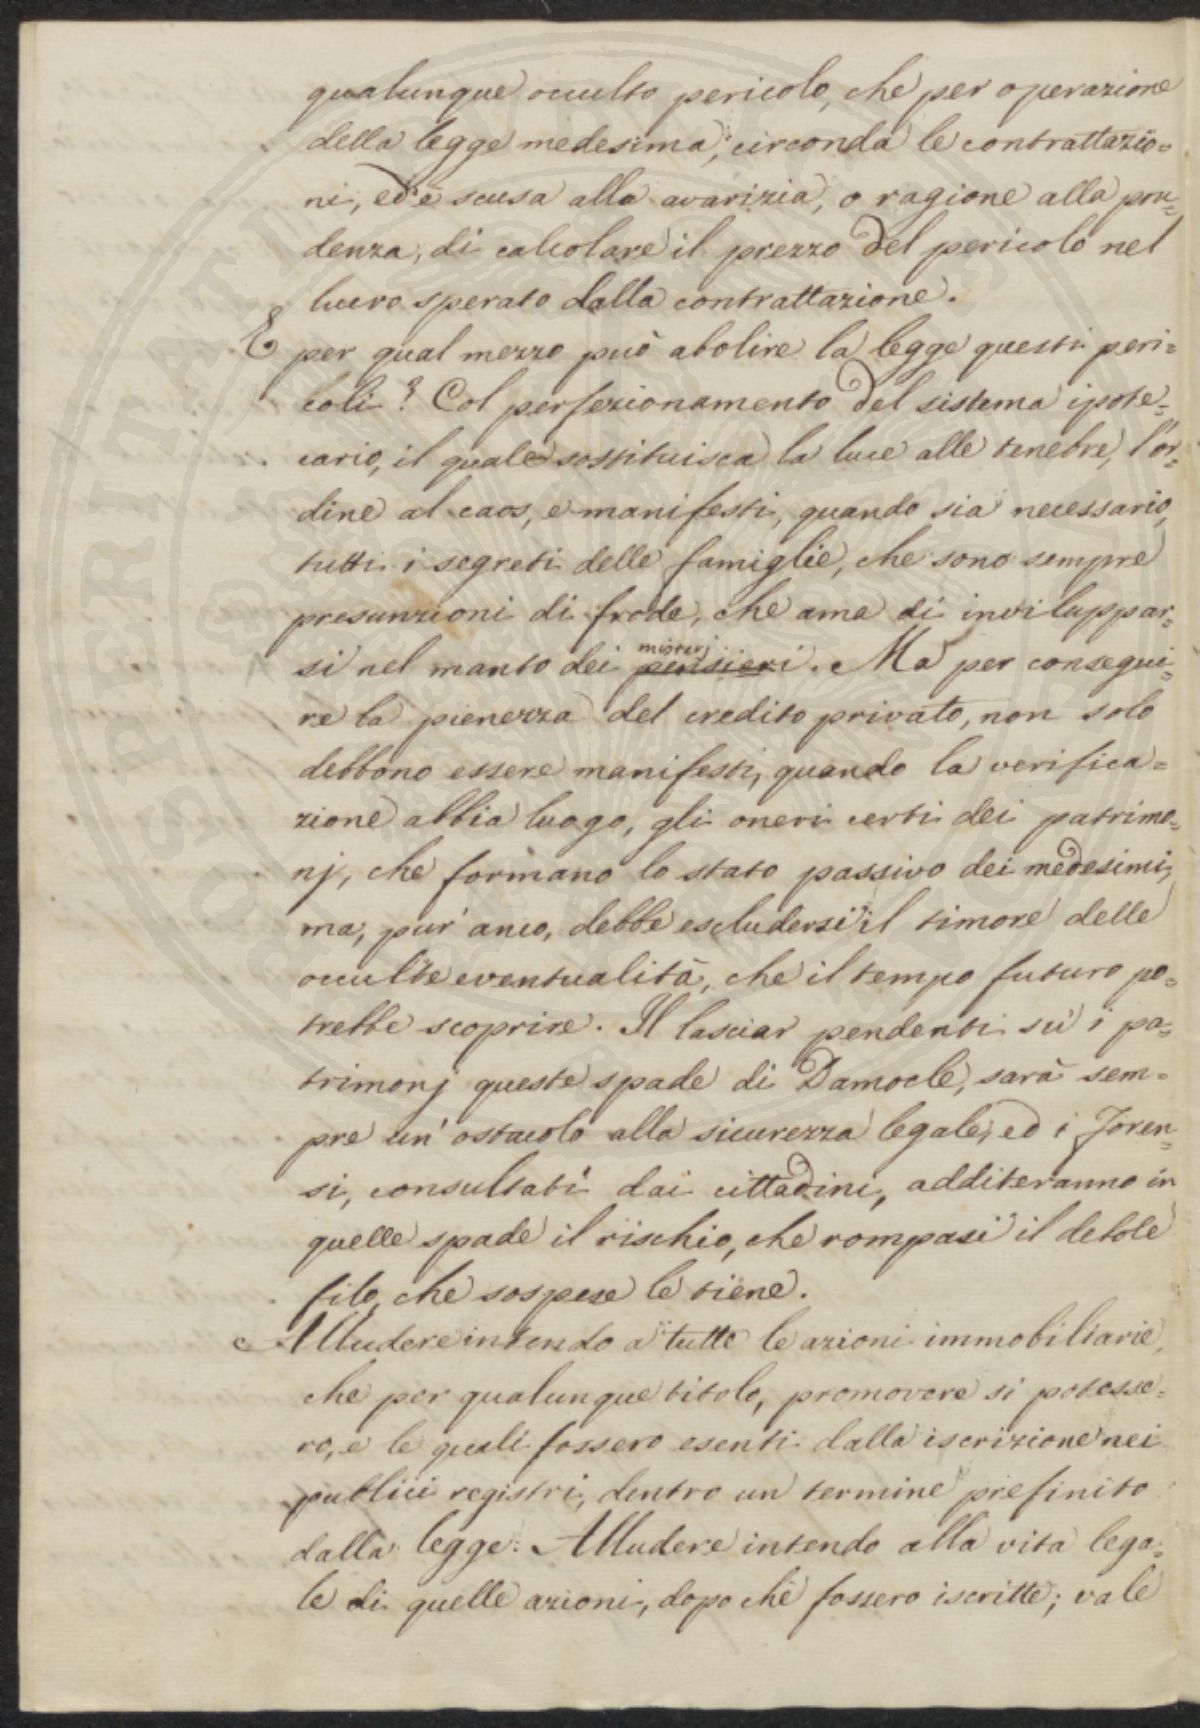 qualunque occulto pericolo, che per operazione
della legge medesima, circonda le contrattazio=
ni, ed è scusa alla avarizia, o ragione alla pru=
denza, di calcolare il prezzo del pericolo nel
lucro sperato dalla contrattazione.
E per qual mezzo può abolire la legge questi peri=
coli? Col perfezionamento del sistema ipote=
cario, il quale sostituisca la luce alle tenebre, l'or=
dine al caos, e manifesti, quando sia necessario,
tutti i segreti delle famiglie, che sono sempre
presunzioni di frode, che ama di inviluppar=
si nel manto dei pensieri misterj. Ma per consegui=
re la pienezza del credito privato, non solo
debbono essere manifesti, quando la verifica=
zione abbia luogo, gli oneri certi dei patrimo=
nj, che formano lo stato passivo dei medesimi,
ma, pur' anco, debbe escludersi il timore delle
occulte eventualità, che il tempo futuro po=
trebbe scoprire. Il lasciar pendenti sù i pa=
trimonj queste spade di Damocle, sarà sem=
pre un' ostacolo alla sicurezza legale, ed i Foren=
si, consultati dai cittadini, additeranno in
quelle spade il rischio, che rompasi il debole
filo, che sospese le tiene.
Alludere intendo a tutte le azioni immobiliarie,
che per qualunque titolo, promovere si potesse=
ro, e le quali fossero esenti dalla iscrizione nei
publici registri, dentro un termine prefinito
dalla legge. Alludere intendo alla vita lega=
le di quelle azioni, dopo che fossero iscritte; vale